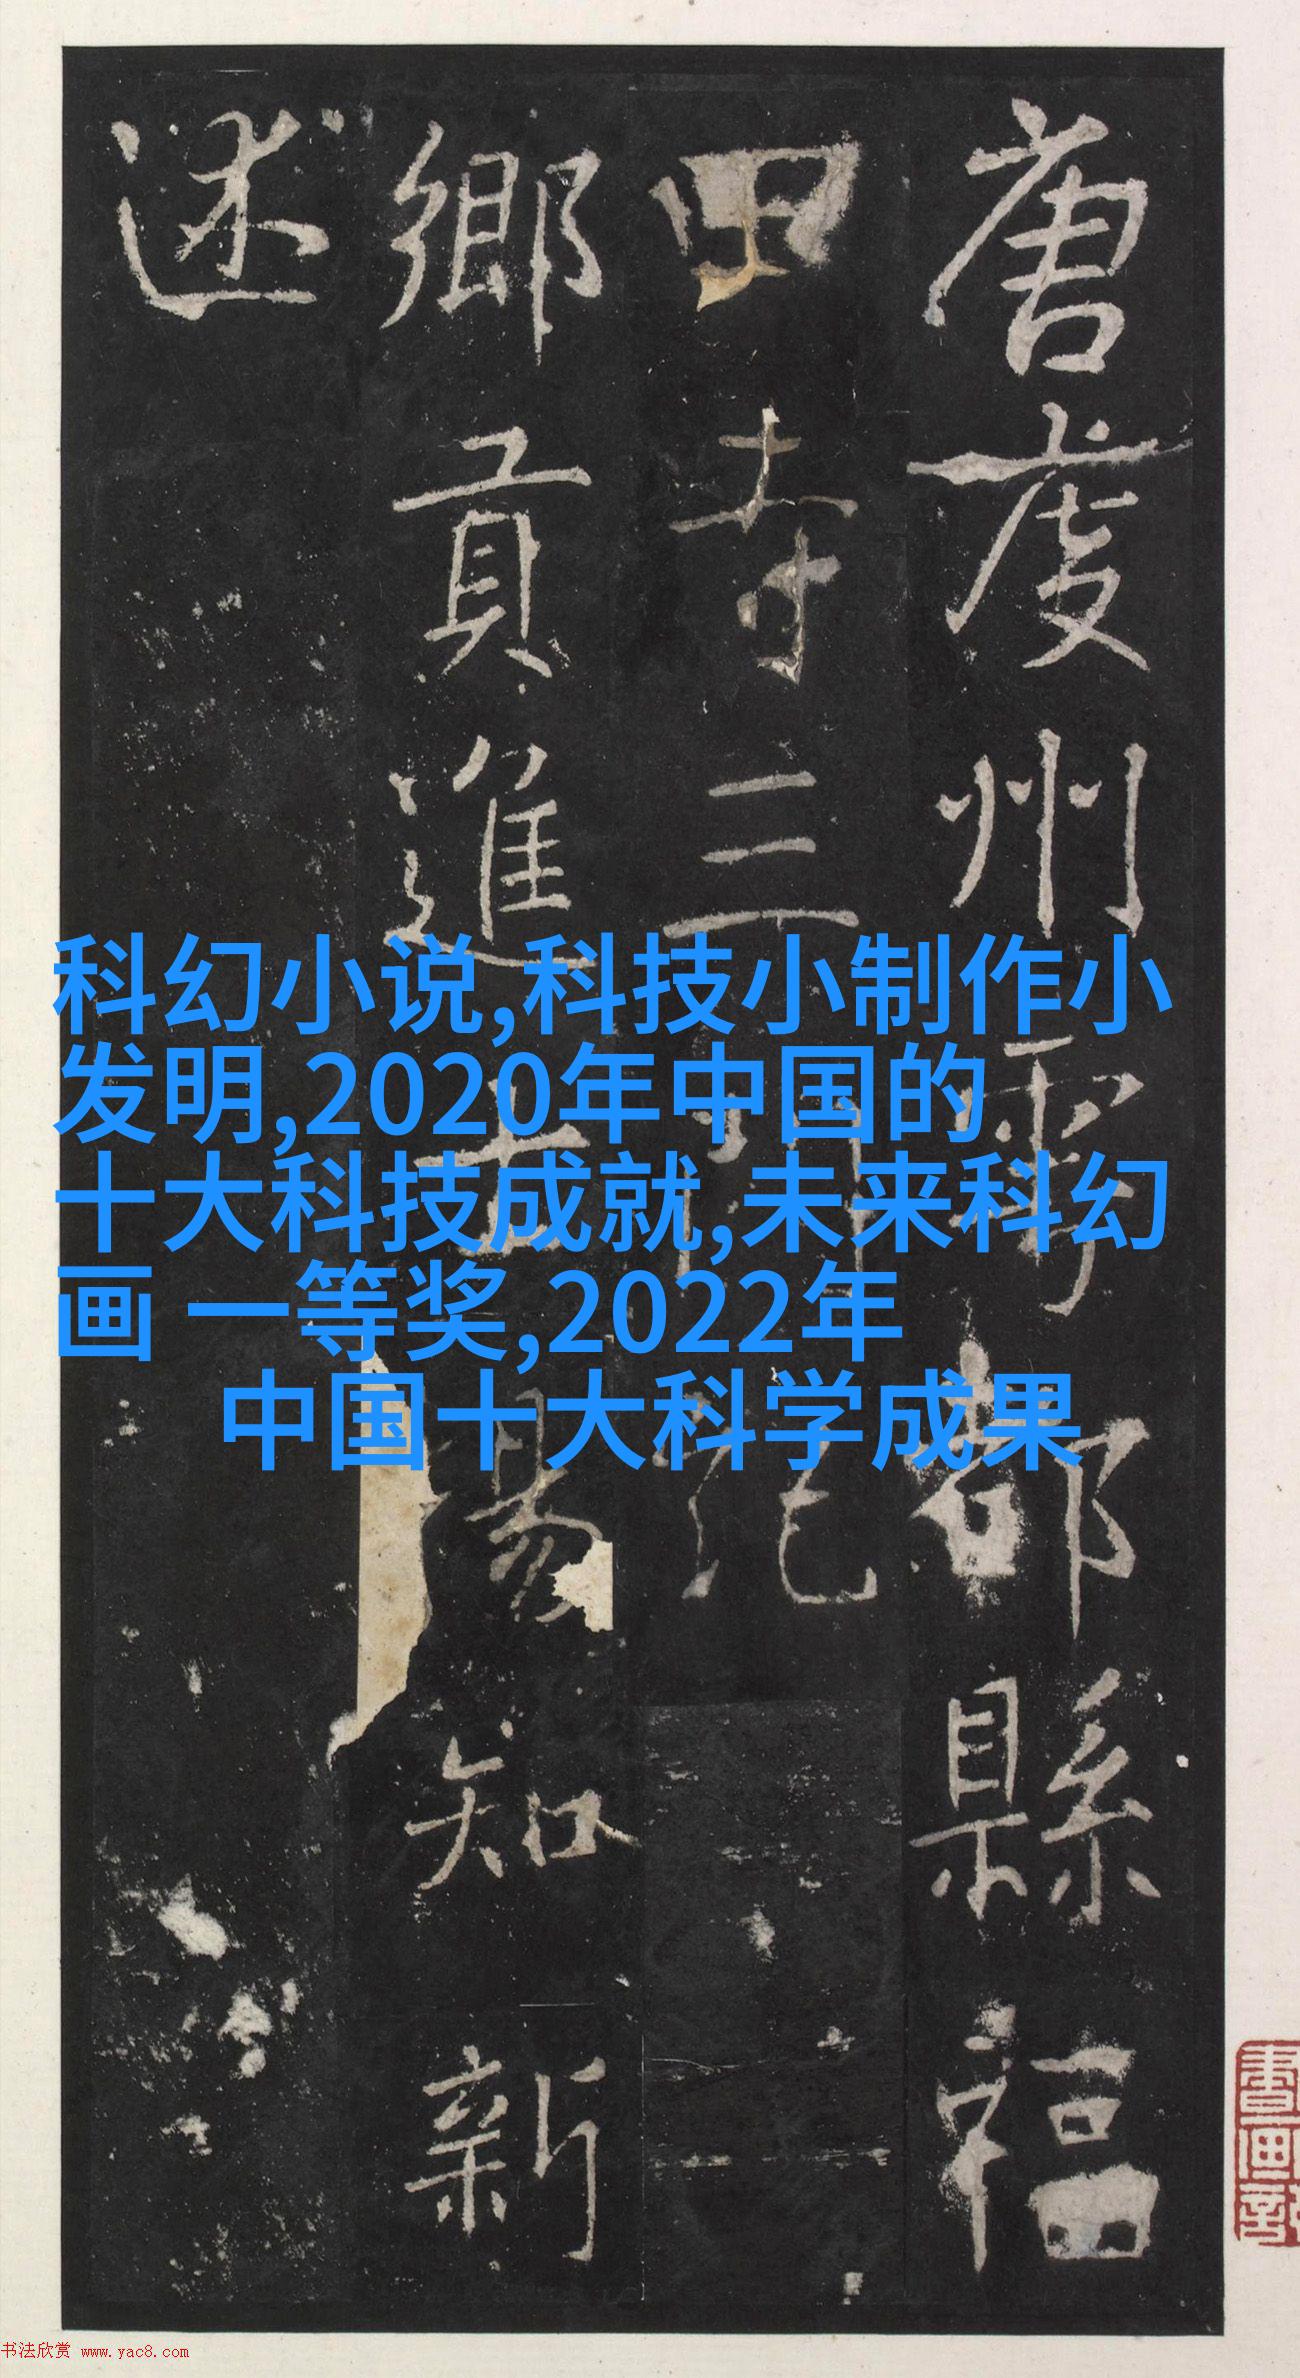 唐虔州雩都縣福
田寺三門記
鄉貢進士昜知新
述
科幻小说,科技小制作小
发明,2020年中国的
十大科技成就,未来科幻
画 一等奖,2022年
中国十大科学成果
书法欣赏 www.yac8.com